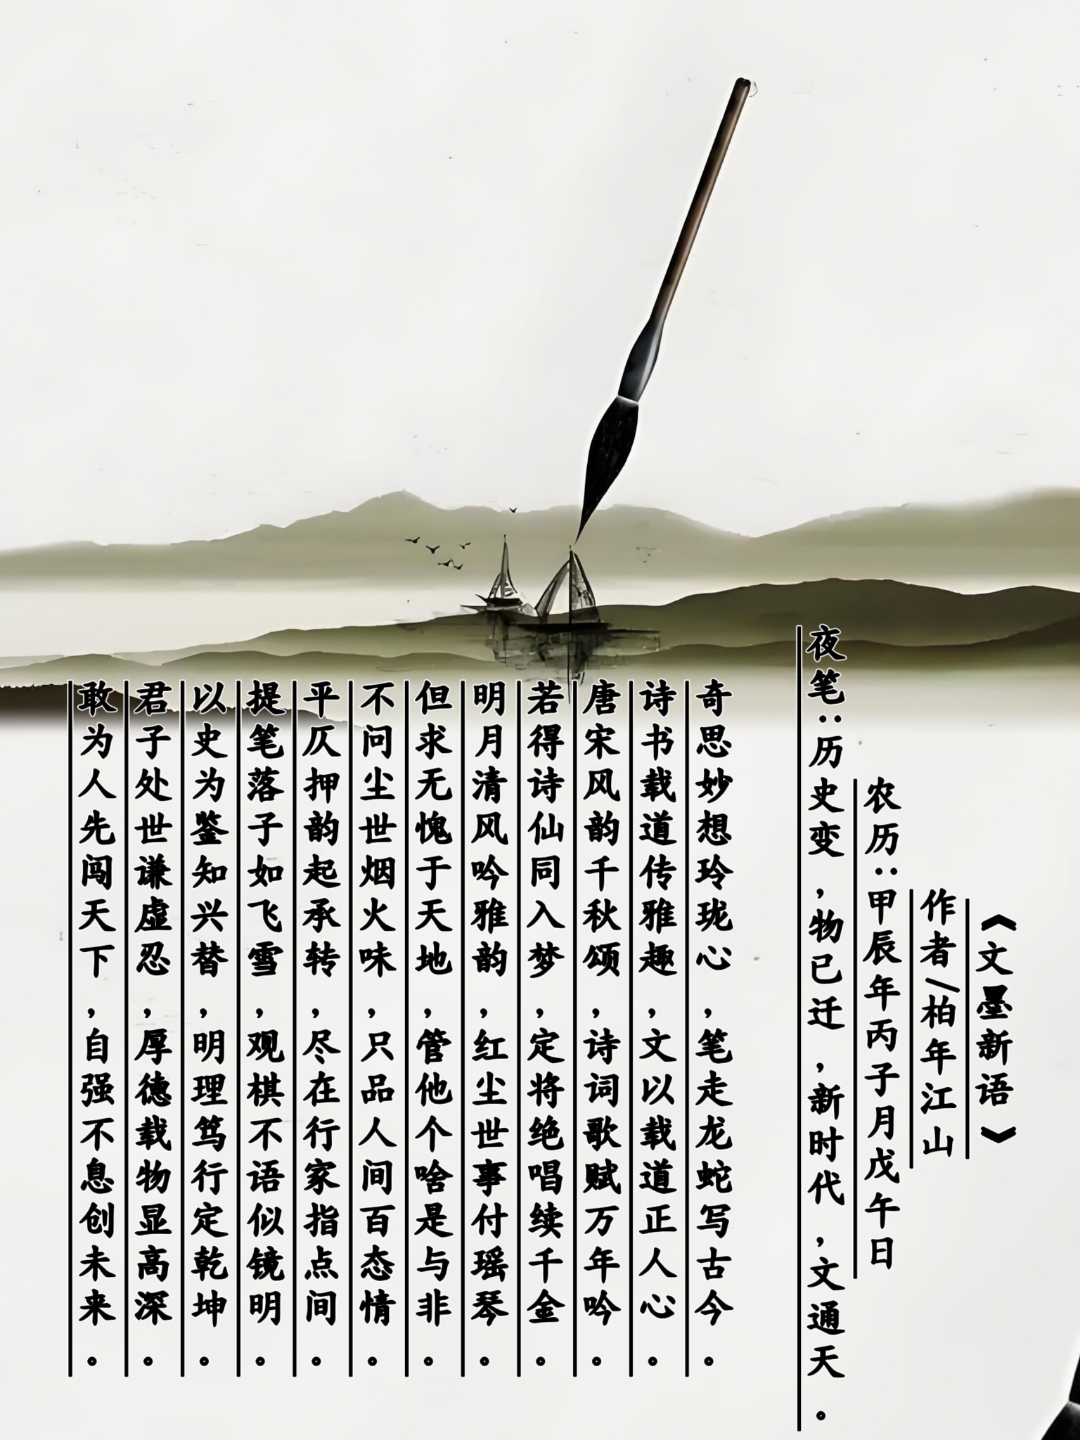 《文墨新语》
作者/柏年江山
农历:甲辰年丙子月戊午日
夜笔:历史变,物已迁,新时代,文通天。
奇思妙想玲珑心,笔走龙蛇写古今。
诗书载道传雅趣,文以载道正人心。
唐宋风韵千秋颂,诗词歌赋万年吟。
若得诗仙同入梦,定将绝唱续千金。
明月清风吟雅韵,红尘世事付瑶琴。
但求无愧于天地,管他个啥是与非。
不问尘世烟火味,只品人间百态情。
平仄押韵起承转,尽在行家指点间。
提笔落子如飞雪,观棋不语似镜明。
以史为鉴知兴替,明理笃行定乾坤。
君子处世谦虚忍,厚德载物显高深。
敢为人先闯天下,自强不息创未来。